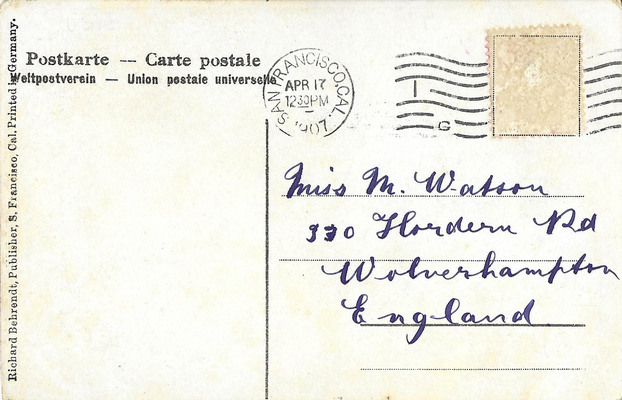 Postkarte — Carte postale
Weltpostverein — Union postale universelle
SAN FRANCISCO, CAL.
APR 17
12 30 PM
1907
I
G
Miss M. Watson
330 Hordern Rd
Wolverhampton
England
Richard Behrendt, Publisher, S. Francisco, Cal. Printed in Germany.